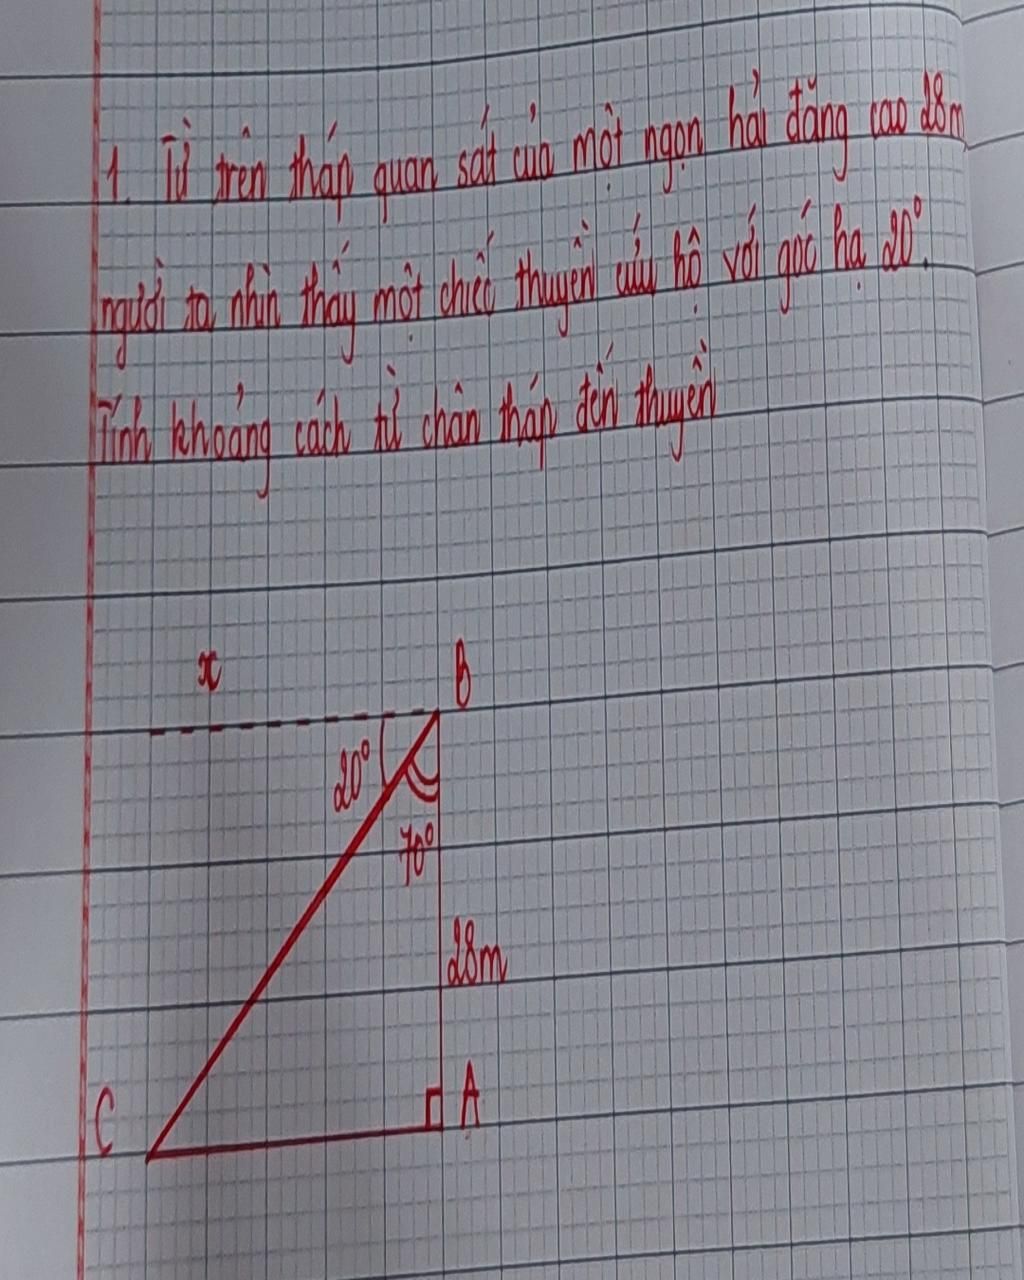 1. Từ trên tháp quan sát của một ngọn hải đăng cao 28m
người ta nhìn thấy một chiếc thuyền cứu hộ với góc hạ 20°.
Tính khoảng cách từ chân tháp đến thuyền
x
B
20°
70°
28m
C
A